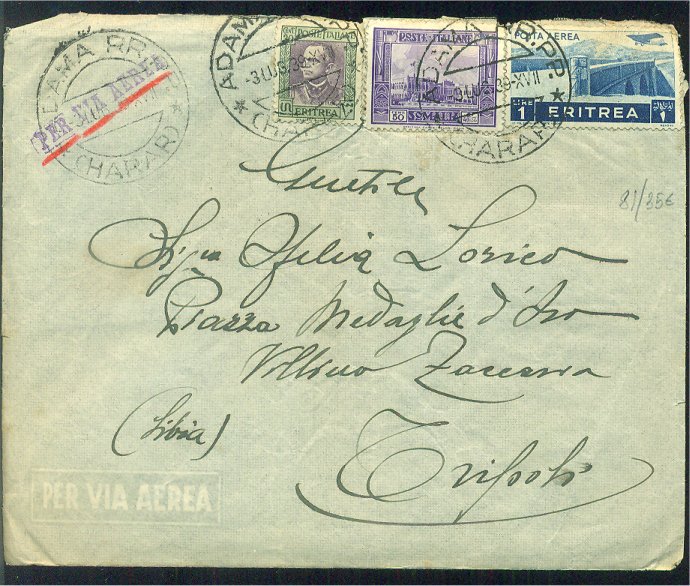 ADAMA RR.PP.
(HARAR)
PER VIA AEREA
ADAMA
-3 LUG 39
(HARAR)
POSTE ITALIANE
ERITREA
POSTE ITALIANE
SOMALIA
ADAMA RR.PP.
39-XVII
(HARAR)
POSTA AEREA
LIRE 1 ERITREA
81/35€
Gentile
Sig.na Ofelia Lorico
Piazza Medaglie d'Oro
Villino Zaccaria
(Libia)
Tripoli
PER VIA AEREA